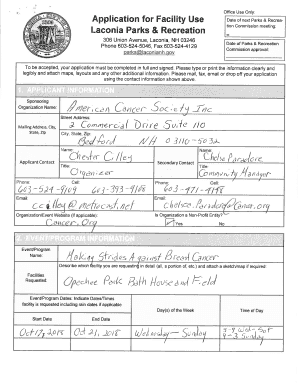 Office Use Only:
Application for Facility Use
Laconia Parks & Recreation
306 Union Avenue, Laconia, NH 03246
Phone 603-524-5046, Fax 603-524-4129
parks@laconianh.gov
Date of next Parks & Recrea-
tion Commission meeting:
or
Date of Parks & Recreation
Commission approval
To be accepted, your application must be completed in full and signed. Please type or print the information clearly and
legibly and attach maps, layouts and any other additional information. Please mail, fax, email or drop off your application
using the contact information shown above.
1. APPLICANT INFORMATION
Sponsoring
Organization Name:
American Cancer Society Inc
Mailing Address, City,
State, Zip
Street Address:
2 Commercial Drive Suite 110
City, State, Zip
Bedford NH 03110-5032
Applicant Contact
Name:
Chester Cilley
Title:
Organizer
Secondary Contact
Name:
Chelse Paradore
Title:
Community Manager
Phone:
603-524-9169
Cell:
603-393-4188
Phone:
Cell:
603-471-4158
Email:
ccilley@metrocast.net
Email:
Organization/Event Website (if applicable)
Cancer.Org
Is Organization a Non-Profit Entity?
Yes
No
2. EVENT/PROGRAM INFORMATION
Event/Program
Name:
Making Strides Against Breast Cancer
Facilities
Requested:
Describe which facility you are requesting in detail (all, a portion of, etc.) and attach a sketch/map if required:
Opechee Park Bath House and Field
Event/Program Dates: Indicate Dates/Times
facility is requested including rain dates if applicable
Start Date
End Date
Day(s) of the Week
Time of Day
Oct 17, 2018
Oct 21, 2018
Wednesday - Sunday
Wed-Sat
Sunday